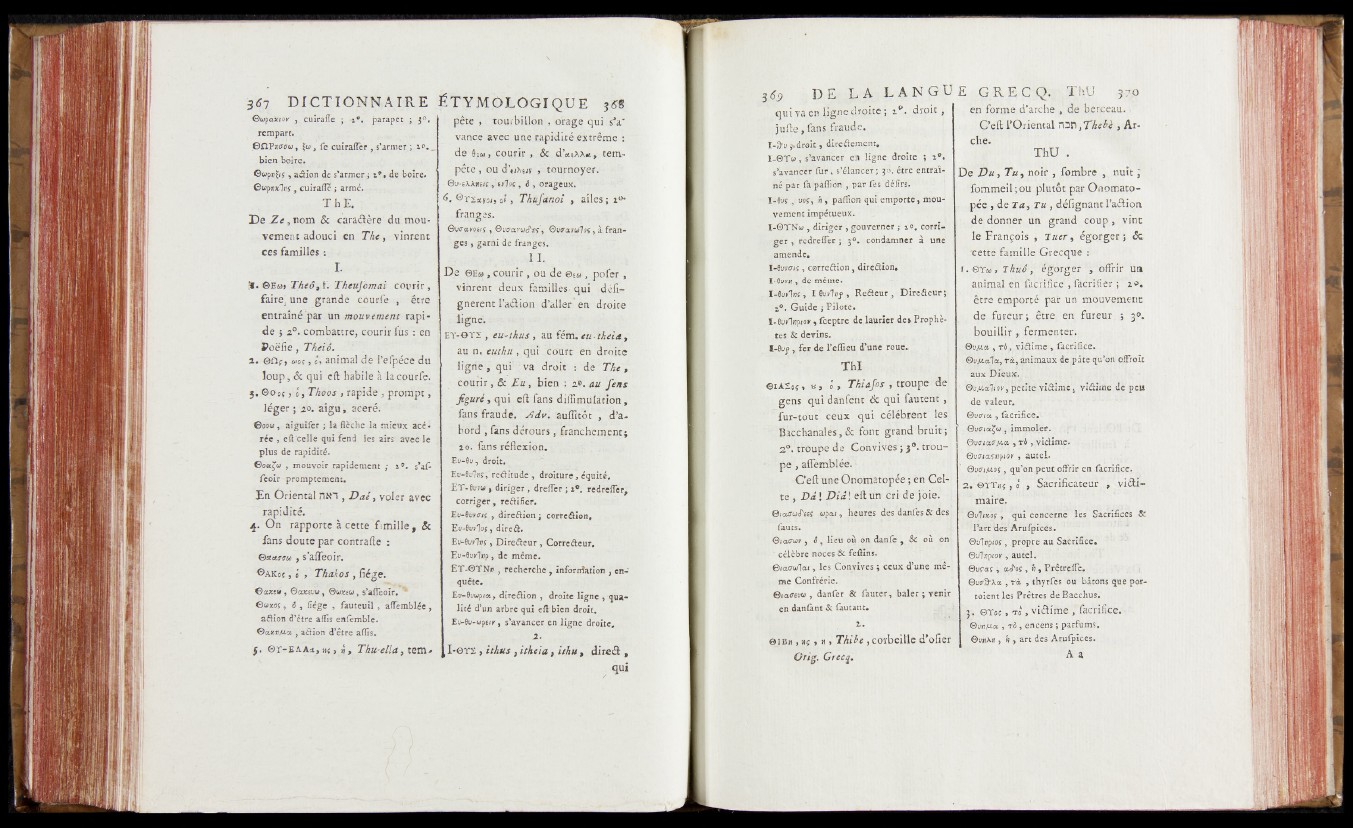 367 DICTIONNAIRE ÉTYMOLOGIQUE 368
Θωρακειον , cuiraſſe ; 2°. parapet ; 3°.
rempart.
ΘΩΡησσω, ξω, ſe cuiraſſer , s'armer ; 2°.
bien boire.
Θωρηξις , action de s'armer ; 2°. de boire.
Θωρηκτης , cuiraſſé ; armé.
ThE,
De Ze , nom & caractère du mou-
vement adouci en The, vinrent
ces familles :
I.
1. ΘΕω, Theô, 1. Theuſomai courir,
faire une grande courſe , être
entraîné par un mouvement rapi-
de ; 2°. combattre, courir ſus : en
Poëſie , Theiô.
2. ΘΩς, ωος, ὁ, animal de l'eſpéce du
loup, & qui eſt habile à la courſe.
3. Θοος, ὁ, Thoos , rapide , prompt ,
léger ; 2o. aigu, aceré.
Θοου , aiguiſer ; la flèche la mieux acé-
rée , eſt celle qui fend les airs avec le
plus de rapidité.
Θοαζω , mouvoir rapidement ; 2°. s'aſ-
ſeoir promptement.
En Oriental דאה , Daé, voler avec
rapidité.
4. On rapporte à cette famille, &
ſans doute par contraſte :
Θαασσω , s'aſſeoir.
ΘΑΚος, ὁ , Thakos , ſiége.
Θακεω , Θακευω, Θωκεω, s'aſſeoir.
Θωκος , ὁ , ſiége , fauteuil , aſſemblée,
action d'être aſſis enſemble.
Θακημα , action d'être aſſis.
5. ΘΥ-ΕΛΛα, ης, ἡ, Thu-ella, tem-
pête , tourbillon , orage qui s'a-
vance avec une rapidité extrême :
de θεω, courir , & d'αελλα, tem-
pête , ou d'ειλεις , tournoyer.
Θυελληεις , εντος , ὁ , orageux.
6. ΘΥΣανοι, οἱ , Thuſanoi , ailes ; 2°.
franges.
Θυσανοεις , Θυσανωδης, Θυσανωτος, à fran-
ges , garni de franges.
II.
De ΘΕω , courir , ou de Θεω , poſer ,
vinrent deux familles qui déſi-
gnerent l'action d'aller en droite
ligne.
ΕΥ-ΘΥΣ , eu-thus , au fém. eu-theia,
au n. euthu , qui court en droite
ligne , qui va droit : de The ,
courir , & Eu, bien : 2°. au ſens
figuré, qui eſt ſans diſſimulation,
ſans fraude. Adv. auſſitôt , d'a-
bord , ſans détours , franchement;
2o. ſans réflexion.
Ευ-θυ, droit.
Ευ-θυτης, rectitude , droiture , équité.
ΕΥ-θυνω , diriger , dreſſer ; 2°. redreſſer,
corriger , rectifier.
Ευ-θυνσις , direction ; correction.
Ευ-θυντος, direct.
Ευ-θυντης, Directeur , Correcteur.
Ευ-θυντηρ, de même.
ΕΥ-ΘΥΝη , recherche , information , en-
quête.
Ευ-θυωρια, direction , droite ligne , qua-
lité d'un arbre qui eſt bien droit.
Ευ-θυ-ωρειν , s'avancer en ligne droite.
2.
Ι-ΘΥΣ , ithus , itheia , ithu , direct ,
qui
369 DE LA LANGUE GRECQ. ThU 370
qui va en ligne droite ; 2°. droit ,
juſte , ſans fraude.
Ι-θυ , droit , directement.
Ι-ΘΥω , s'avancer en ligne droite ; 2°.
s'avancer ſur , s'élancer ; 3°. être entraî-
né par ſa paſſion , par ſes déſirs.
Ι-θυς , υος, ἡ, paſſion qui emporte , mou-
vement impétueux.
Ι-ΘΥΝω , diriger , gouverner ; 2°. corri-
ger , redreſſer ; 3°. condamner à une
amende.
Ι-θυνσις , correction , direction.
Ι-θυνη , de même.
Ι-θυντης, Ι θυντηρ , Recteur , Directeur;
2°. Guide ; Pilote.
Ι-θυντηριον , ſceptre de laurier des Prophè-
tes & devins.
Ι-θυρ , fer de l'eſſieu d'une roue.
ThI
ΘΙΑΣος , υ, ὁ , Thiaſos , troupe de
gens qui danſent & qui ſautent ,
ſur-tout ceux qui célébrent les
Bacchanales, & font grand bruit;
2°. troupe de Convives ; 3°. trou-
pe , aſſemblée.
C'eſt une Onomatopée ; en Cel-
te , Dà! Dia! eſt un cri de joie.
Θιασωδεις ωραι, heures des danſes & des
ſauts.
Θιασων , ὁ , lieu où on danſe , & où on
célébre noces & feſtins.
Θιασωται , les Convives ; ceux d'une mê-
me Confrérie.
Θιασευω , danſer & ſauter, baler ; venir
en danſant & ſautant.
2.
ΘΙΒη , ης , ἡ , Thibe , corbeille d'oſier
Orig. Grecq.
en forme d'arche , de berceau.
C'eſt l'Oriental תבה , Thebè , Ar-
che.
ThU .
De Du, Tu, noir , ſombre , nuit ;
ſommeil ; ou plutôt par Onomato-
pée , de Ta, Tu , déſignant l'action
de donner un grand coup , vint
le François , Tuer , égorger ; &
cette famille Grecque :
1. ΘΥω, Thuô , égorger , offrir un
animal en ſacrifice , ſacrifier ; 2°.
être emporté par un mouvement
de fureur ; être en fureur ; 3°.
bouillir , fermenter.
Θυμα , τὸ, victime , ſacrifice.
Θυματα, τὰ, animaux de pâte qu'on offroit
aux Dieux.
Θυματιον, petite victime , victime de peu
de valeur.
Θυσια , ſacrifice.
Θυσιαζω , immoler.
Θυσιασμα , τὸ , victime.
Θυσιαστηριον , autel.
Θυσιμος , qu'on peut offrir en ſacrifice.
2. ΘΥΤης , ὁ , Sacrificateur , victi-
maire.
Θυτικος , qui concerne les Sacrifices &
l'art des Aruſpices.
Θυτηριος , propre au Sacrifice.
Θυτηριον , autel.
Θυιας , αδος , ἡ , Prêtreſſe.
Θυσθλα , τὰ , thyrſes ou bâtons que por-
toient les Prêtres de Bacchus.
3. ΘΥος , τὸ , victime , ſacrifice.
Θυημα , τὸ , encens ; parfums.
Θυηλη , ἡ , art des Aruſpices.
A a